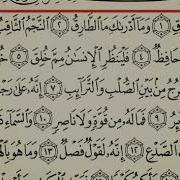 ١ وَمَآ أَدۡرَىٰكَ مَا ٱلطَّارِقُ ٢ ٱلنَّجۡمُ ٱلثَّاقِبُ
حَافِظٞ ٤ فَلۡيَنظُرِ ٱلۡإِنسَٰنُ مِمَّ خُلِقَ ٥
رُجُ مِنۢ بَيۡنِ ٱلصُّلۡبِ وَٱلتَّرَآئِبِ ٧ إِنَّهُۥ عَلَىٰ رَجۡ
٩ فَمَا لَهُۥ مِن قُوَّةٖ وَلَا نَاصِرٖ ١٠ وَٱلسَّمَآءِ
ٱلصَّدۡعِ ١٢ إِنَّهُۥ لَقَوۡلٞ فَصۡلٞ ١٣ وَمَا هُوَ بِٱلۡ